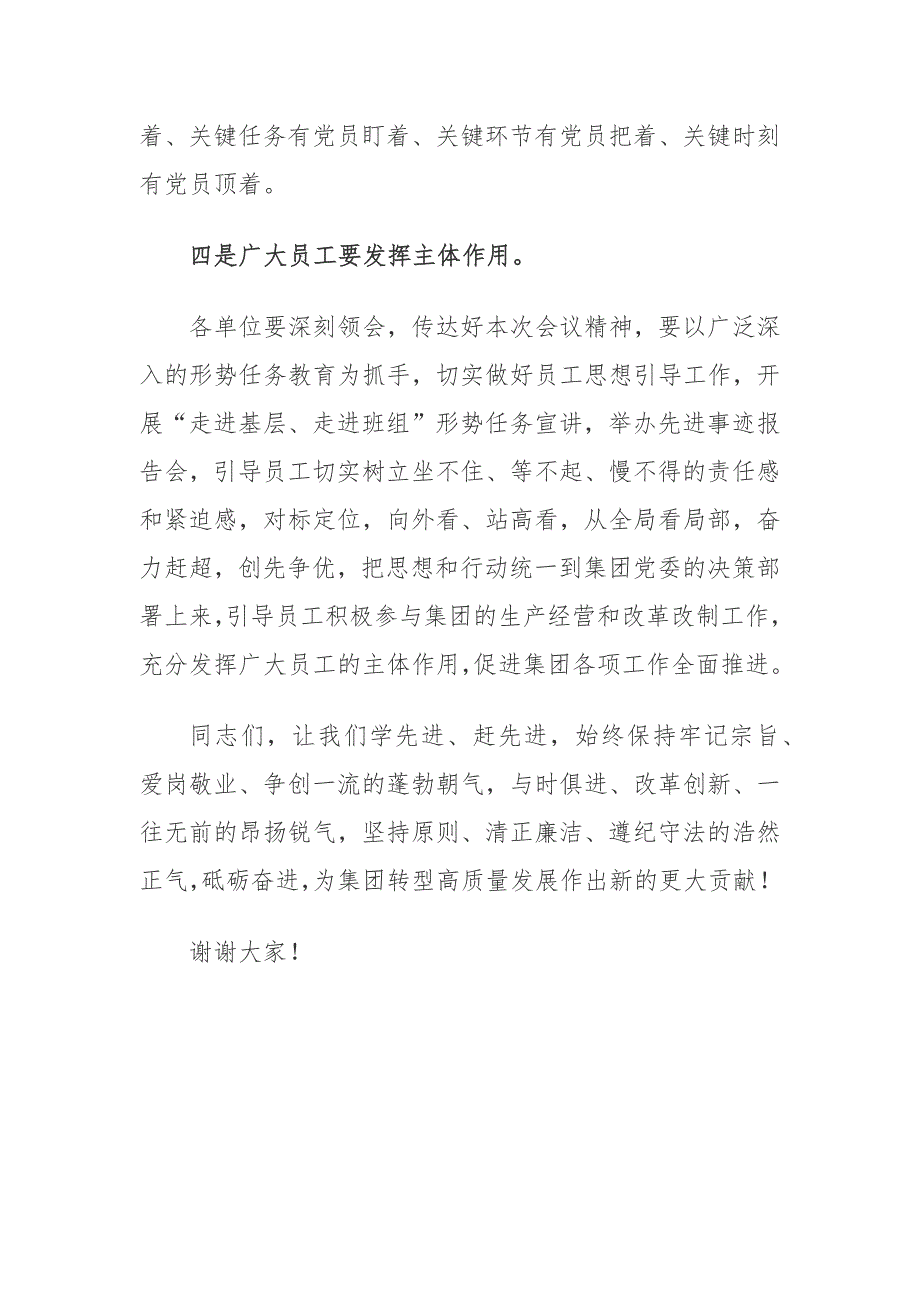 着、关键任务有党员盯着、关键环节有党员把着、关键时刻
有党员顶着。
四是广大员工要发挥主体作用。
各单位要深刻领会，传达好本次会议精神，要以广泛深
入的形势任务教育为抓手，切实做好员工思想引导工作，开
展“走进基层、走进班组”形势任务宣讲，举办先进事迹报
告会，引导员工切实树立坐不住、等不起、慢不得的责任感
和紧迫感，对标定位，向外看、站高看，从全局看局部，奋
力赶超，创先争优，把思想和行动统一到集团党委的决策部
署上来，引导员工积极参与集团的生产经营和改革改制工作，
充分发挥广大员工的主体作用，促进集团各项工作全面推进。
同志们，让我们学先进、赶先进，始终保持牢记宗旨、
爱岗敬业、争创一流的蓬勃朝气，与时俱进、改革创新、一
往无前的昂扬锐气，坚持原则、清正廉洁、遵纪守法的浩然
正气，砥砺奋进，为集团转型高质量发展作出新的更大贡献！
谢谢大家！